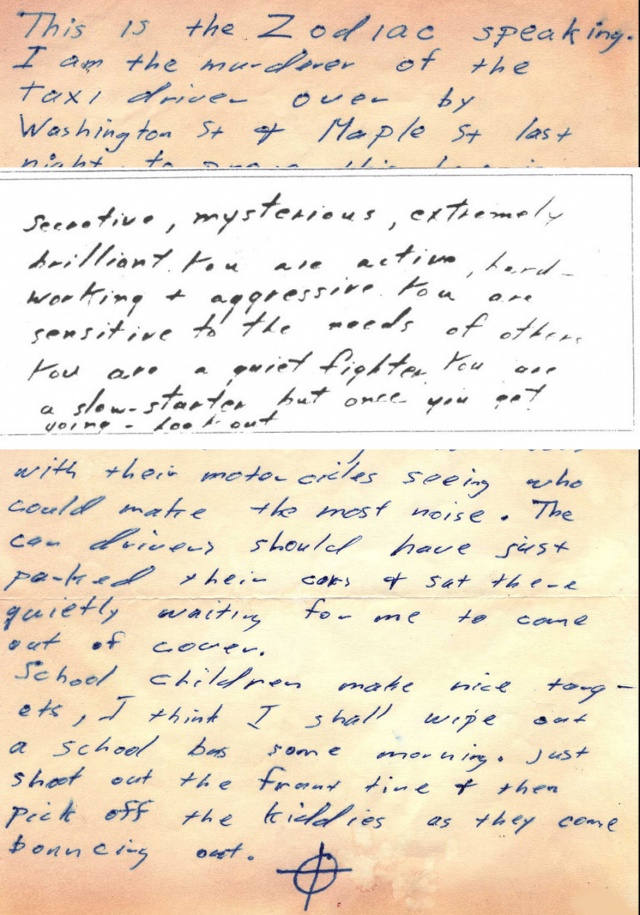 This is the Zodiac speaking.
I am the murderer of the
taxi driver over by
Washington St & Maple St last
night, to
secretive, mysterious, extremely
brilliant. You are active, hard-
working + aggressive. You are
sensitive to the needs of others
You are a quiet fighter. You are
a slow-starter but once you get
going - look out
with their motorcicles seeing who
could make the most noise. The
car drivers should have just
parked their cars & sat there
quietly waiting for me to come
out of cover.
School children make nice targ-
ets, I think I shall wipe out
a school bus some morning. Just
shoot out the front tire & then
pick off the kiddies as they come
bouncing out.